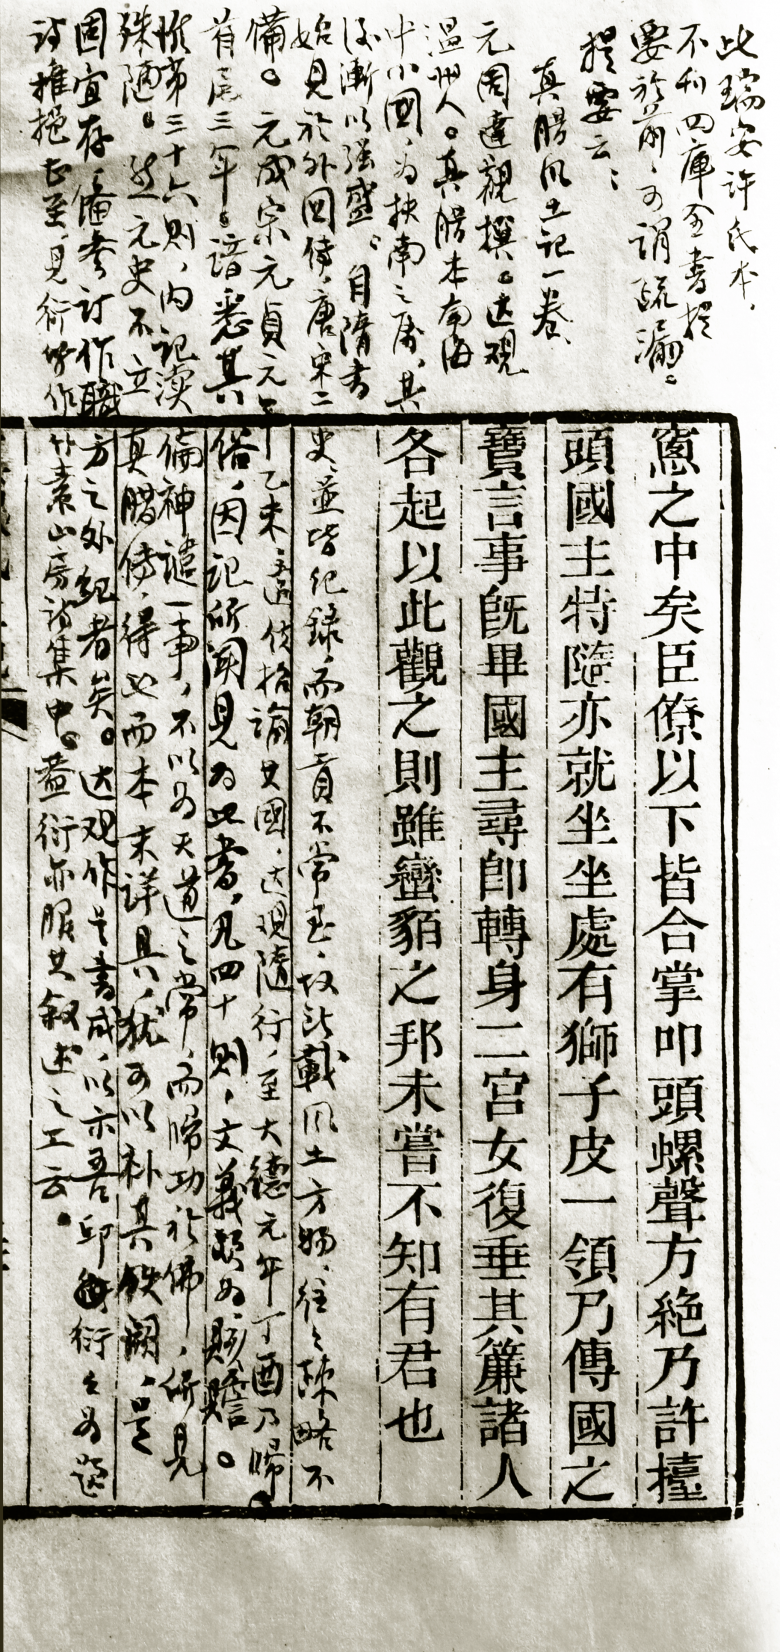 窻之中矣臣僚以下皆合掌叩頭螺聲方絶乃許擡
頭國主特隨亦就坐坐處有獅子皮一領乃傳國之
寶言事旣畢國主尋卽轉身二宮女復垂其簾諸人
各起以此觀之則雖蠻貊之邦未嘗不知有君也
此瑞安許氏本，
不刊四庫全書提
要於前，可謂疏漏。
提要云：
真臘風土記一卷、
元周達觀撰。达觀
溫州人。真腊本南海
中小國，为扶南之屬，其
後漸以强盛。自隋書
始見於外國傳，唐宋二史，並皆纪録，而朝貢不常至，故所載風土方物，往々疎略不
備。元成宗元貞元年乙未，遣使招諭其國，达观隨行，至大德元年丁酉乃歸。
首尾三年。諳悉其俗，因記所聞見为此書，凡四十則，文義頗为賅贍。
惟第三十六則，内記瀆倫神譴一事，不以为天道之常，而歸功於佛，所見
殊陋。然元史不立真腊傳，得此而本末详具，猶可以补其佚闕，是
固宜存，備參订作職方之外纪者矣。达观作是書成，以示吾邱衍，衍为题
诗，推挹甚至，見衍所作竹素山房诗集中。蓋衍亦服其叙述之工云。